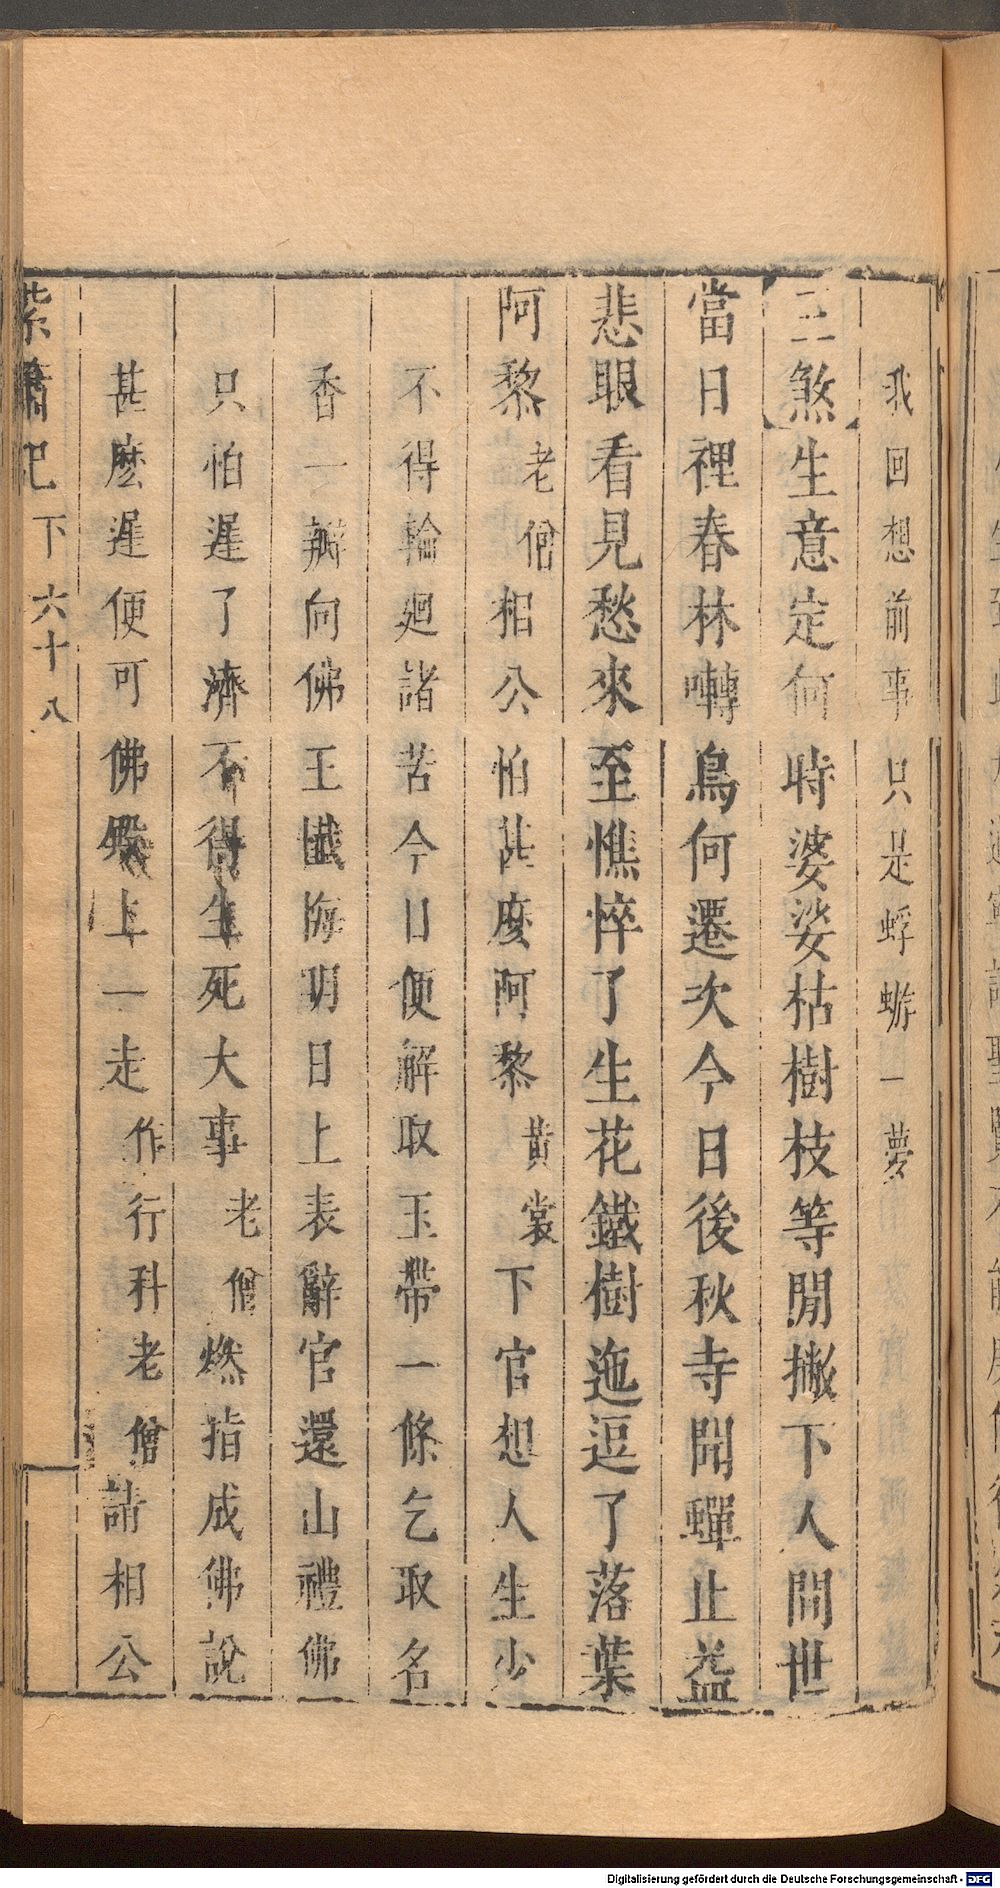 我回想前事只是蜉蝣一夢
三煞生意定何時婆娑枯樹枝等閒撇下人間世
當日裡春林囀鳥何遷次今日後秋寺聞蟬止益
悲眼看見愁來至憔悴了生花鐵樹迤逗了落葉
阿黎老僧相公怕甚麼阿黎黃裳下官想人生少
不得輪廻諸苦今日便解取玉帶一條乞取名
香一瓣向佛王懺悔明日上表辭官還山禮佛
只怕遲了濟不得生死大事老僧燃指成佛說
甚麼遲便可佛殿上一走作行科老僧請相公
紫簫記 下 六十八
Digitalisierung gefördert durch die Deutsche Forschungsgemeinschaft - DFG